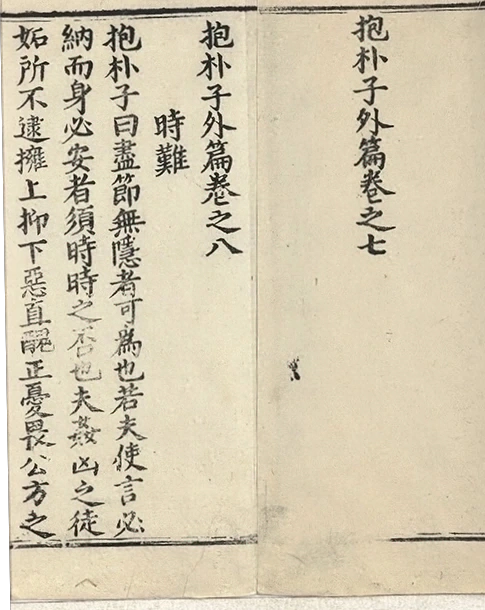 抱朴子外篇卷之七
抱朴子外篇卷之八
時難
抱朴子曰盡節無隱者可爲也若夫使言必
納而身必安者須時時之否也夫姦凶之徒
妬所不逮擁上抑下惡直醜正憂畏公方之